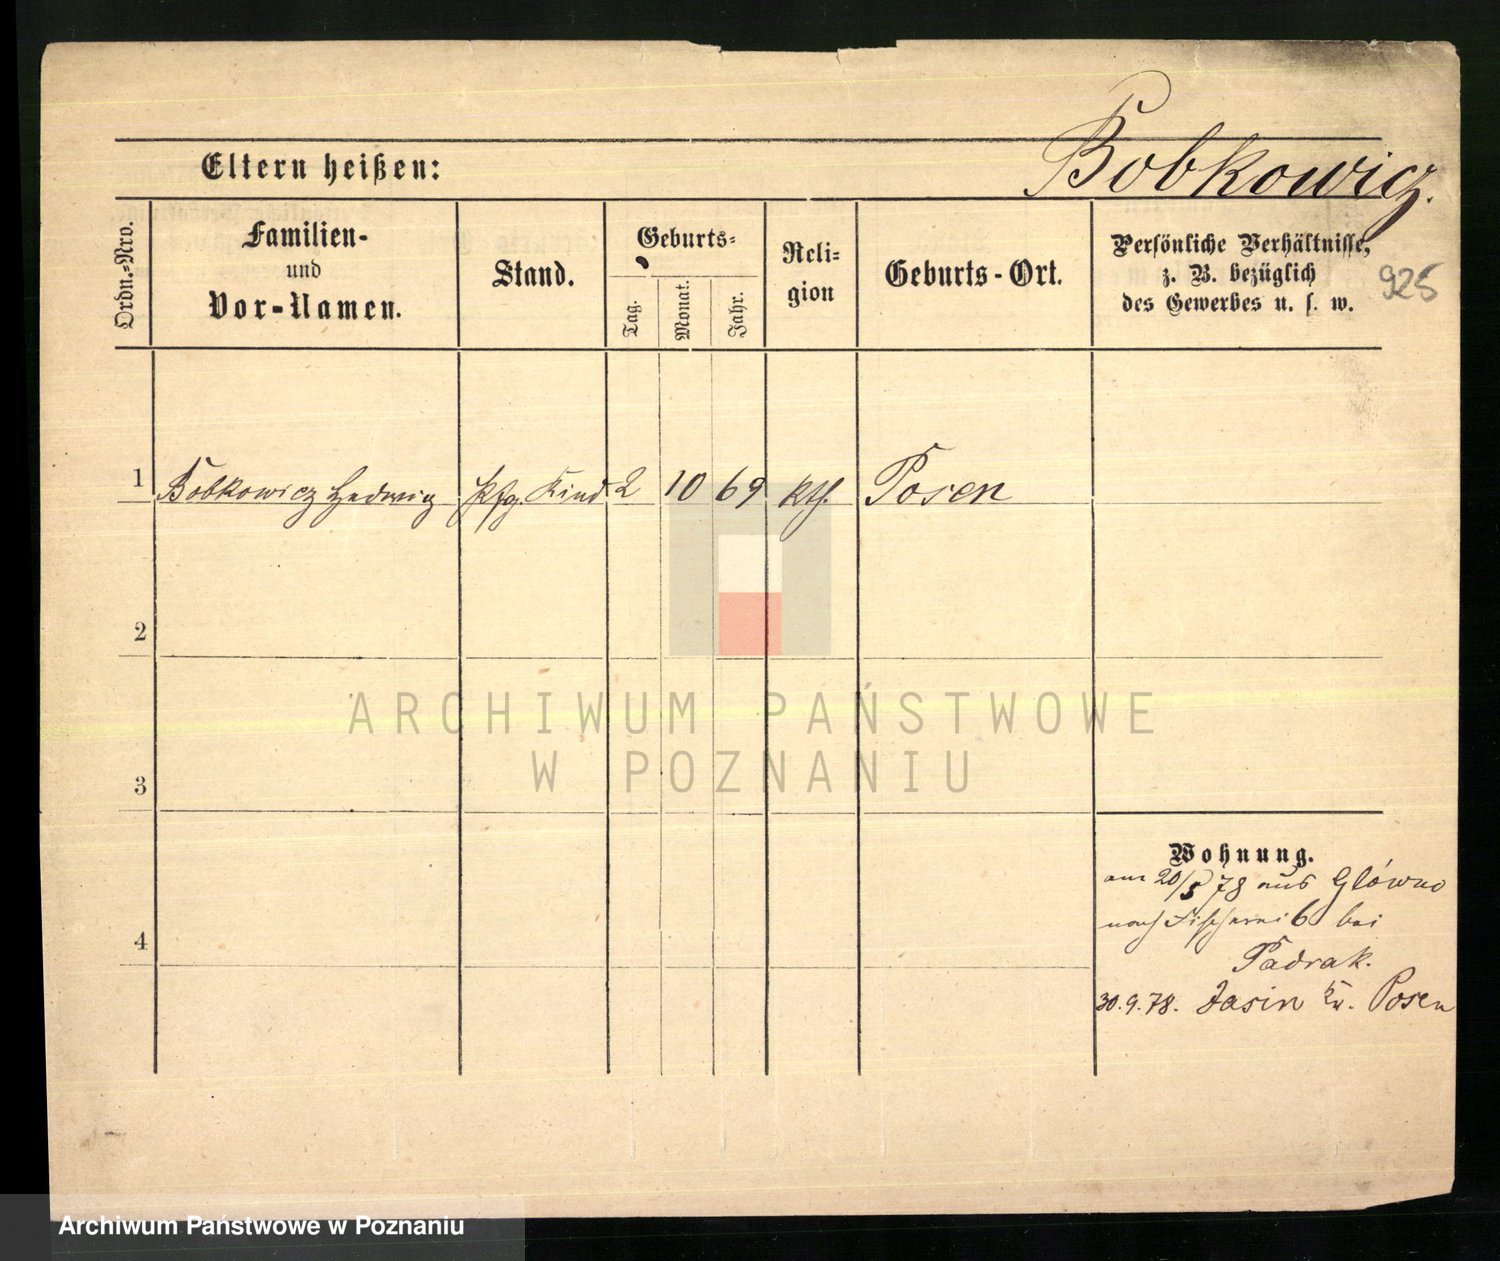 Bobkowicz.
Eltern heißen:
Ordn.-Nro.
Familien-
und
Vor-Namen.
Stand.
Geburts-
Tag.
Monat.
Jahr.
Reli-
gion
Geburts-Ort.
Persönliche Verhältnisse,
z. B. bezüglich
des Gewerbes u. s. w.
925
1 Bobkowicz Hedwig Pflg. Kind 2 10 69 kth. Posen
2
3
4
Wohnung.
am 20/5 78 aus Glówno
nach Fischerei 6 bei
Padrak.
30.9.78. Jasin Kr. Posen
ARCHIWUM PAŃSTWOWE
W POZNANIU
Archiwum Państwowe w Poznaniu